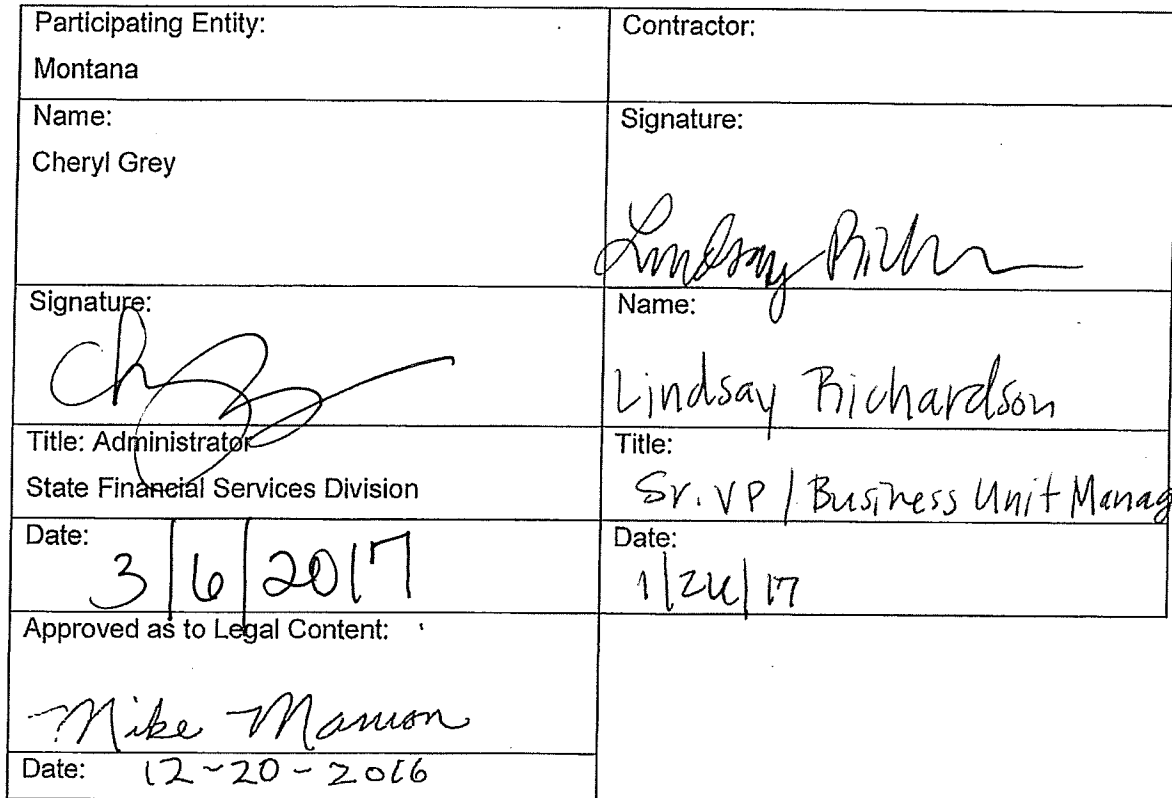 Participating Entity:
Montana
Contractor:
Name:
Cheryl Grey
Signature:
Lindsay
Signature:
Name:
Lindsay Richardson
Title: Administrator
State Financial Services Division
Title:
Sr. VP / Business Unit Manag
Date:
3/6/2017
Date:
1/26/17
Approved as to Legal Content:
Mike Manion
Date: 12-20-2016